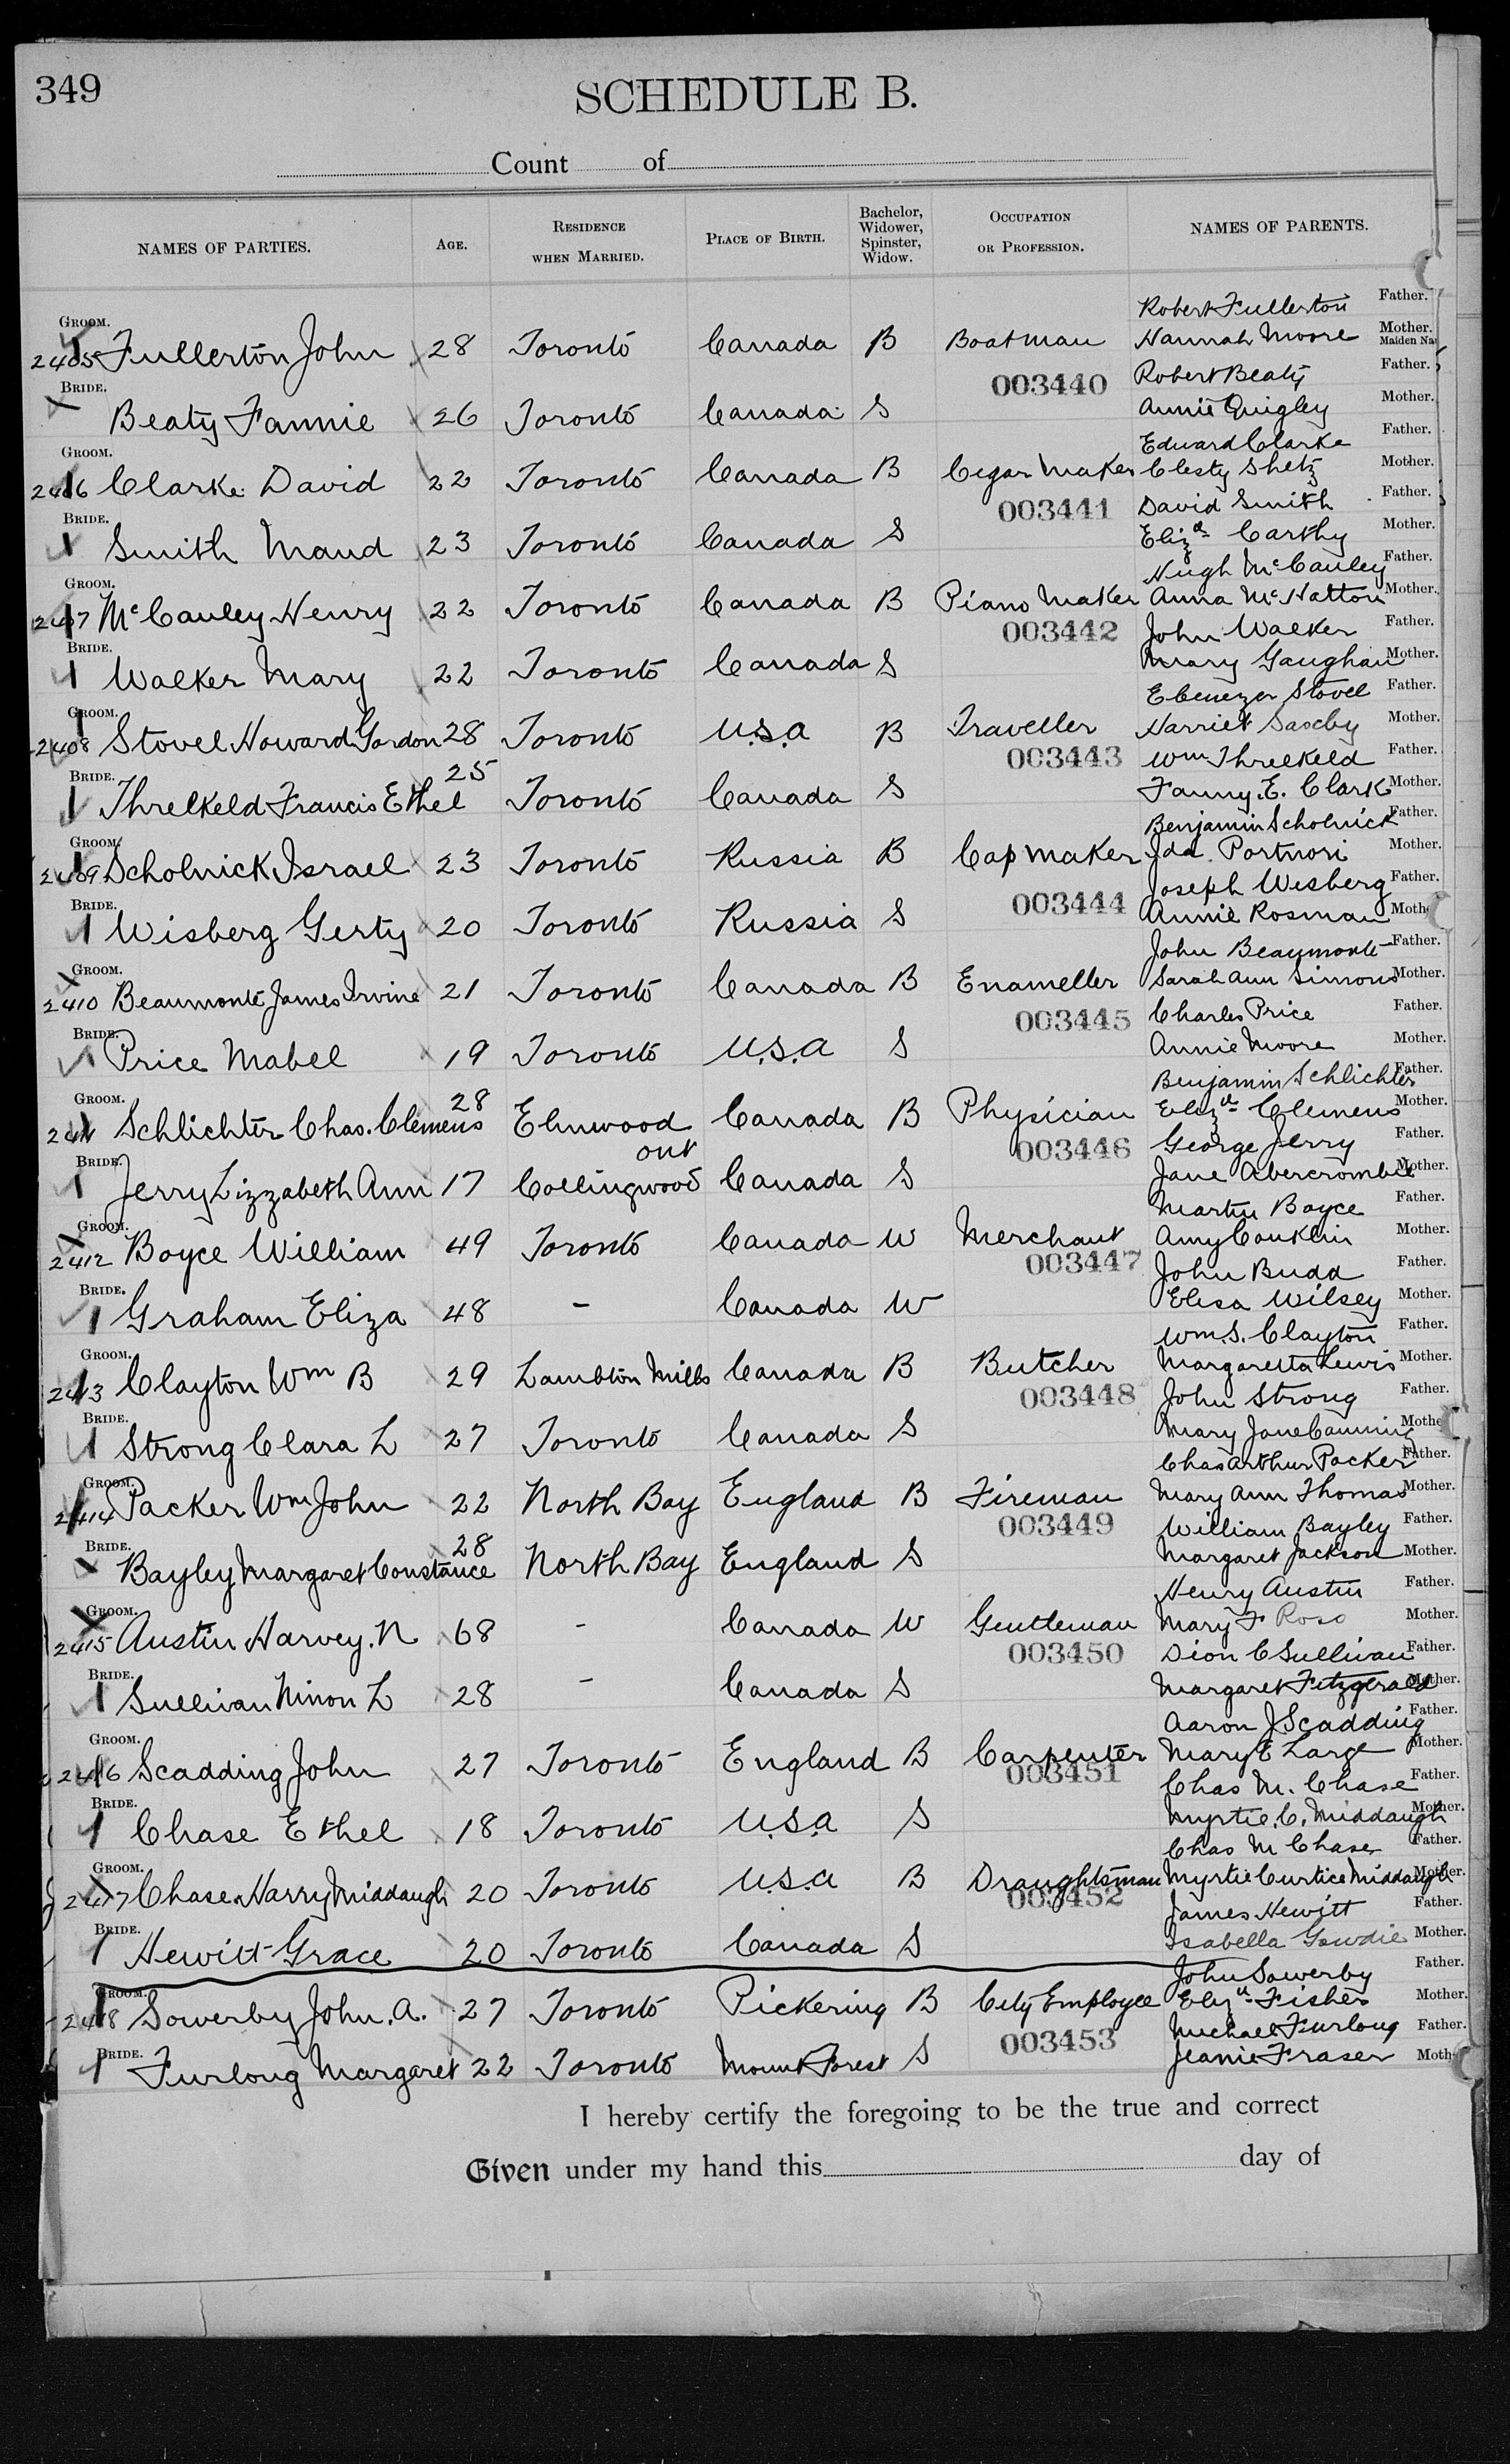 349
SCHEDULE B.
Count of
NAMES OF PARTIES. AGE. RESIDENCE WHEN MARRIED. PLACE OF BIRTH. Bachelor, Widower, Spinster, Widow. OCCUPATION OR PROFESSION. NAMES OF PARENTS.
Robert Fullerton Father.
GROOM.
2405 Fullerton John 28 Toronto Canada B Boatman Hannah Moore Mother. Maiden
003440 Robert Beaty Father.
BRIDE.
Beaty Fannie 26 Toronto Canada S Annie Quigley Mother.
Edward Clarke Father.
GROOM.
2406 Clarke David 22 Toronto Canada B Cigar Maker Clesty Shetz Mother.
003441 David Smith Father.
BRIDE.
Smith Maud 23 Toronto Canada S Eliz a Carthy Mother.
Hugh McCauley Father.
GROOM.
2407 McCauley Henry 22 Toronto Canada B Piano Maker Anna McHatton Mother.
003442 John Walker Father.
BRIDE.
Walker Mary 22 Toronto Canada S Mary Gaughan Mother.
Ebenezer Stovel Father.
GROOM.
2408 Stovel Howard Gordon 28 Toronto U.S.A B Traveller Harriet Saxeby Mother.
003443 Wm Threlkeld Father.
BRIDE.
Threlkeld Francis Ethel 25 Toronto Canada S Fanny. E. Clark Mother.
Benjamin Scholnick Father.
GROOM.
2409 Scholnick Israel 23 Toronto Russia B Cap maker Ida Portnori Mother.
003444 Joseph Wisberg Father.
BRIDE.
Wisberg Gerty 20 Toronto Russia S Annie Rosman Moth
John Beaumonte Father.
GROOM.
2410 Beaumonte James Irvine 21 Toronto Canada B Enameller Sarah Ann Simons Mother.
003445 Charles Price Father.
BRIDE.
Price Mabel 19 Toronto U.S.A S Annie Moore Mother.
Benjamin Schlichter Father.
GROOM.
2411 Schlichter Chas. Clemens 28 Elmwood Ont Canada B Physician Eliz a Clemens Mother.
003446 George Jerry Father.
BRIDE.
Jerry Lizzabeth Ann 17 Collingwood Canada S Jane Abercrombie Mother.
Martin Boyce Father.
GROOM.
2412 Boyce William 49 Toronto Canada W Merchant Amy Conklin Mother.
003447 John Budd Father.
BRIDE.
Graham Eliza 48 - Canada W Elisa Wilsey Mother.
Wm. S. Clayton Father.
GROOM.
2413 Clayton Wm B 29 Lambton Mills Canada B Butcher Margaretta Lewis Mother.
003448 John Strong Father.
BRIDE.
Strong Clara L 27 Toronto Canada S Mary Jane Canning Mothe
Chas Arthur Packer Father.
GROOM.
2414 Packer Wm John 22 North Bay England B Fireman Mary Ann Thomas Mother.
003449 William Bayley Father.
BRIDE.
Bayley Margaret Constance 28 North Bay England S Margaret Jackson Mother.
Henry Austin Father.
GROOM.
2415 Austin Harvey. N 68 - Canada W Gentleman Mary F Roso Mother.
003450 Dion C Sullivan Father.
BRIDE.
Sullivan Ninon L 28 - Canada S Margaret Fitzgerald Mother.
Aaron J Scadding Father.
GROOM.
2416 Scadding John 27 Toronto England B Carpenter Mary E Large Mother.
003451 Chas M. Chase Father.
BRIDE.
Chase Ethel 18 Toronto U.S.A S Myrtie. C. Middaugh Mother.
Chas M Chase Father.
GROOM.
2417 Chase Harry Middaugh 20 Toronto U.S.A B Draughtsman Myrtie Curtice Middaugh Mother.
003452 James Hewitt Father.
BRIDE.
Hewitt Grace 20 Toronto Canada S Isabella Gowdie Mother.
John Sowerby Father.
GROOM.
2418 Sowerby John. A. 27 Toronto Pickering B City Employee Eliz a Fisher Mother.
003453 Michael Furlong Father.
BRIDE.
Furlong Margaret 22 Toronto Mount Forest S Jeanie Fraser Moth
I hereby certify the foregoing to be the true and correct
Given under my hand this day of